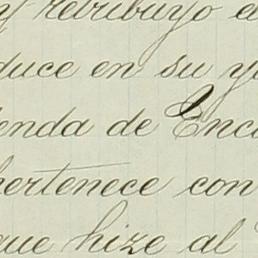 y retribuyo e
duce en su y
enda de Enco
pertenece con
que hize al